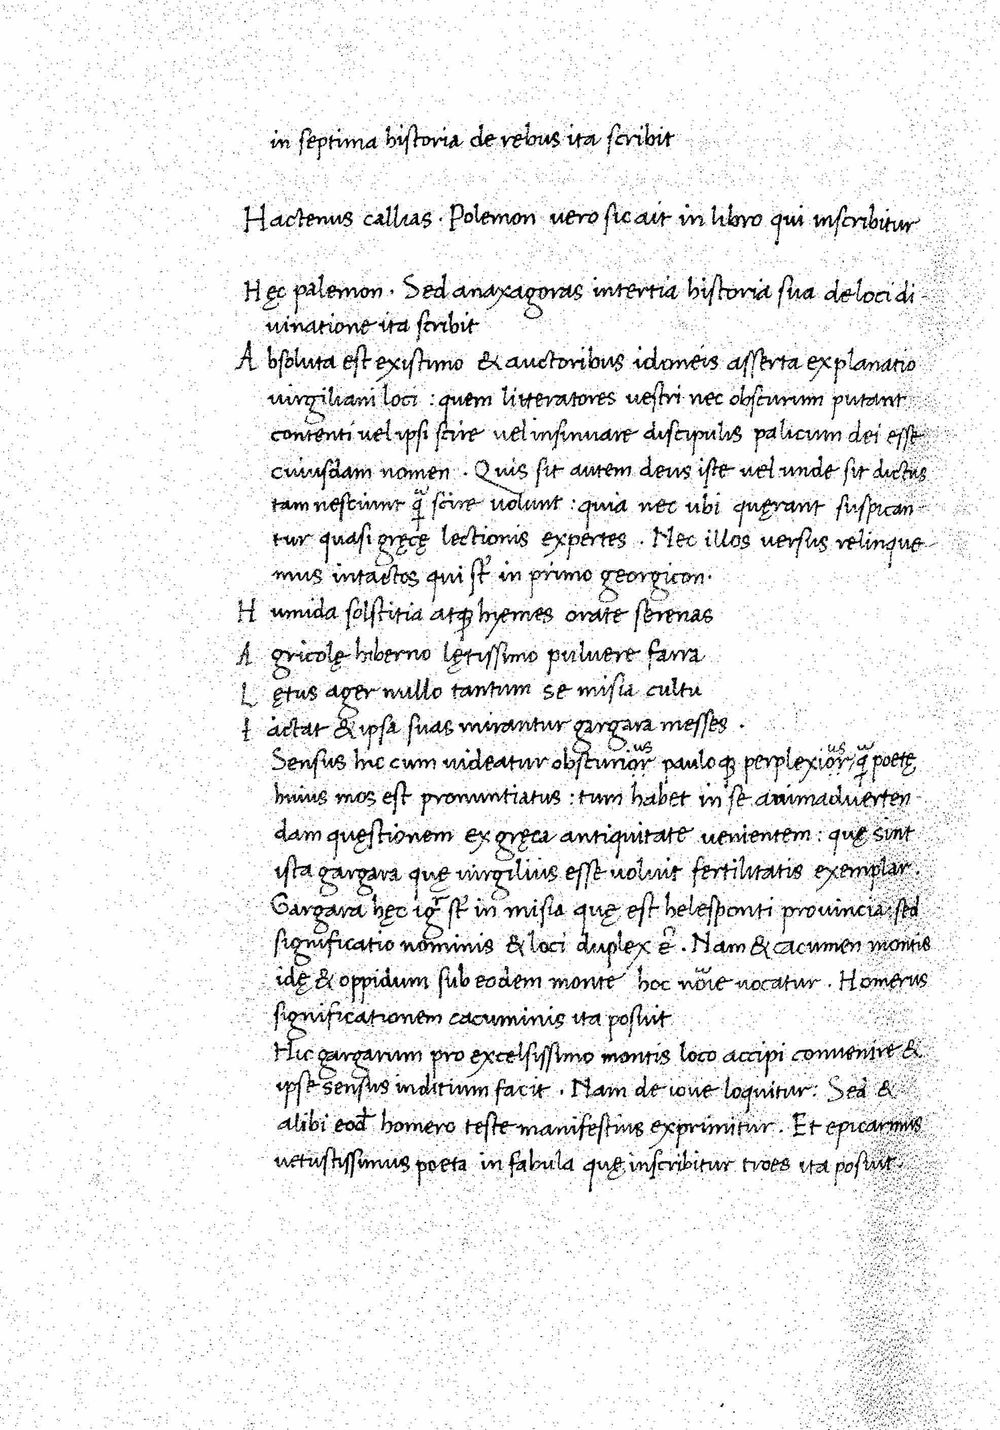 in septima historia de rebus ita scribit
Hactenus callias · Polemon uero sic ait in libro qui inscribitur
Hęc palemon · Sed anaxagoras intertia historia sua de loci di-
uinatione ita scribit
Absoluta est existimo & auctoribus idoneis asserta explanatio
uirgiliani loci : quem litteratores uestri nec obscurum putant
contenti uel ipsi scire uel insinuare discipulis palicum dei esse
cuiusdam nomen · Quis sit autem deus iste uel unde sit dictus
tam nesciunt q̃ scire uolunt : quia nec ubi quęrant suspican-
tur quasi gręcę lectionis expertes · Nec illos uersus relinque-
mus intactos qui st̃ in primo georgicon·
Humida solstitia atq; hyemes orate serenas
Agricolę hiberno lętissimo puluere farra
Lętus ager nullo tantum se misia cultu
Iactat & ipsa suas mirantur gargara messes ·
Sensus hic cum uideatur obscurior us pauloq; perplexior us q̃ poetę
huius mos est pronuntiatus : tum habet in se animaduerten-
dam quęstionem ex gręca antiquitate uenientem : quę sint
ista gargara quę uirgilius esse uoluit fertilitatis exemplar·
Gargara hęc igr̃ st̃ in misia quę est helesponti prouincia: sed
significatio nominis & loci duplex ẽ · Nam & cacumen montis
idę & oppidum sub eodem monte hoc nõie uocatur · Homerus
significationem cacuminis ita posuit
Hic gargarum pro excelsissimo montis loco accipi conuenire &
ipse sensus inditium facit · Nam de ioue loquitur: Sed &
alibi eod̃ homero teste manifestius exprimitur · Et epicarmus
uetustissimus poeta in fabula quę inscribitur troes ita posuit·